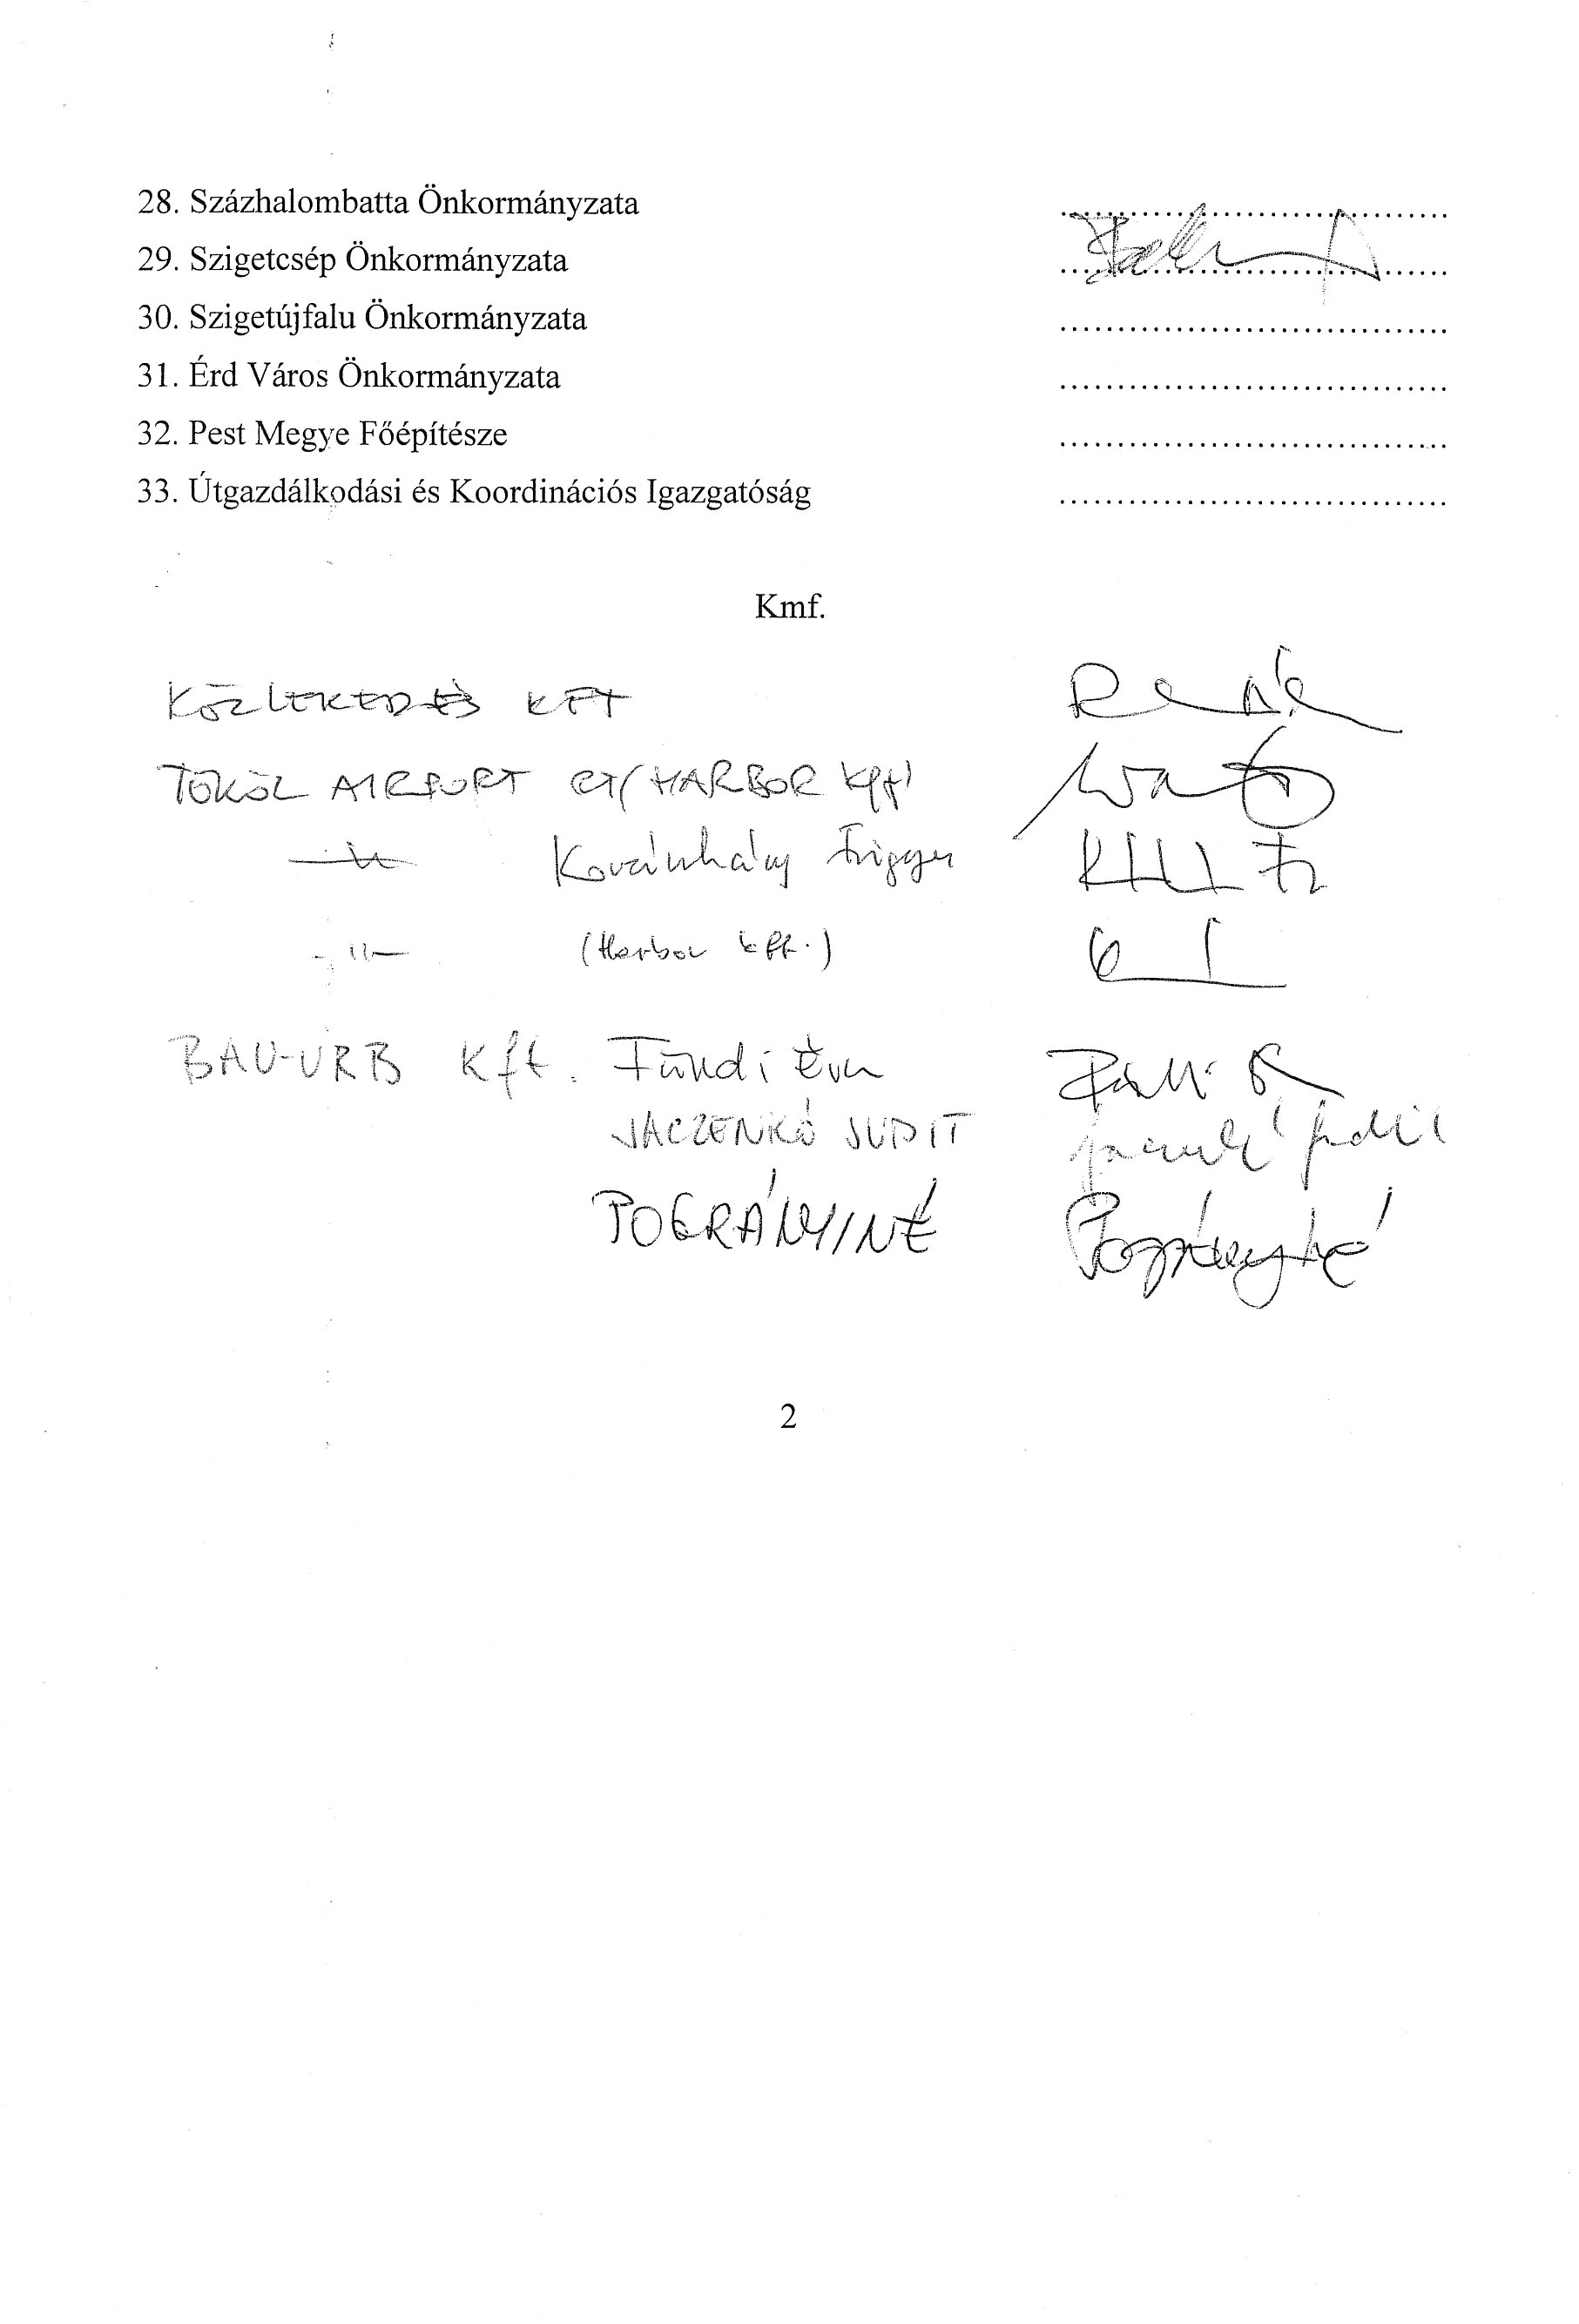 28. Százhalombatta Önkormányzata ..................................
29. Szigetcsép Önkormányzata ..................................
30. Szigetújfalu Önkormányzata ..................................
31. Érd Város Önkormányzata ..................................
32. Pest Megye Főépítésze ..................................
33. Útgazdálkodási és Koordinációs Igazgatóság ..................................
Kmf.
KÖZLEKEDÉS KFT
TÖKÖL AIRPORT RT/HARBOR Kft
—"— Frigyes
—"— (Harbor kft.)
BAU-URB Kft. Fündi Éva
JACZENKÓ JUDIT
POGRÁNYINÉ
2